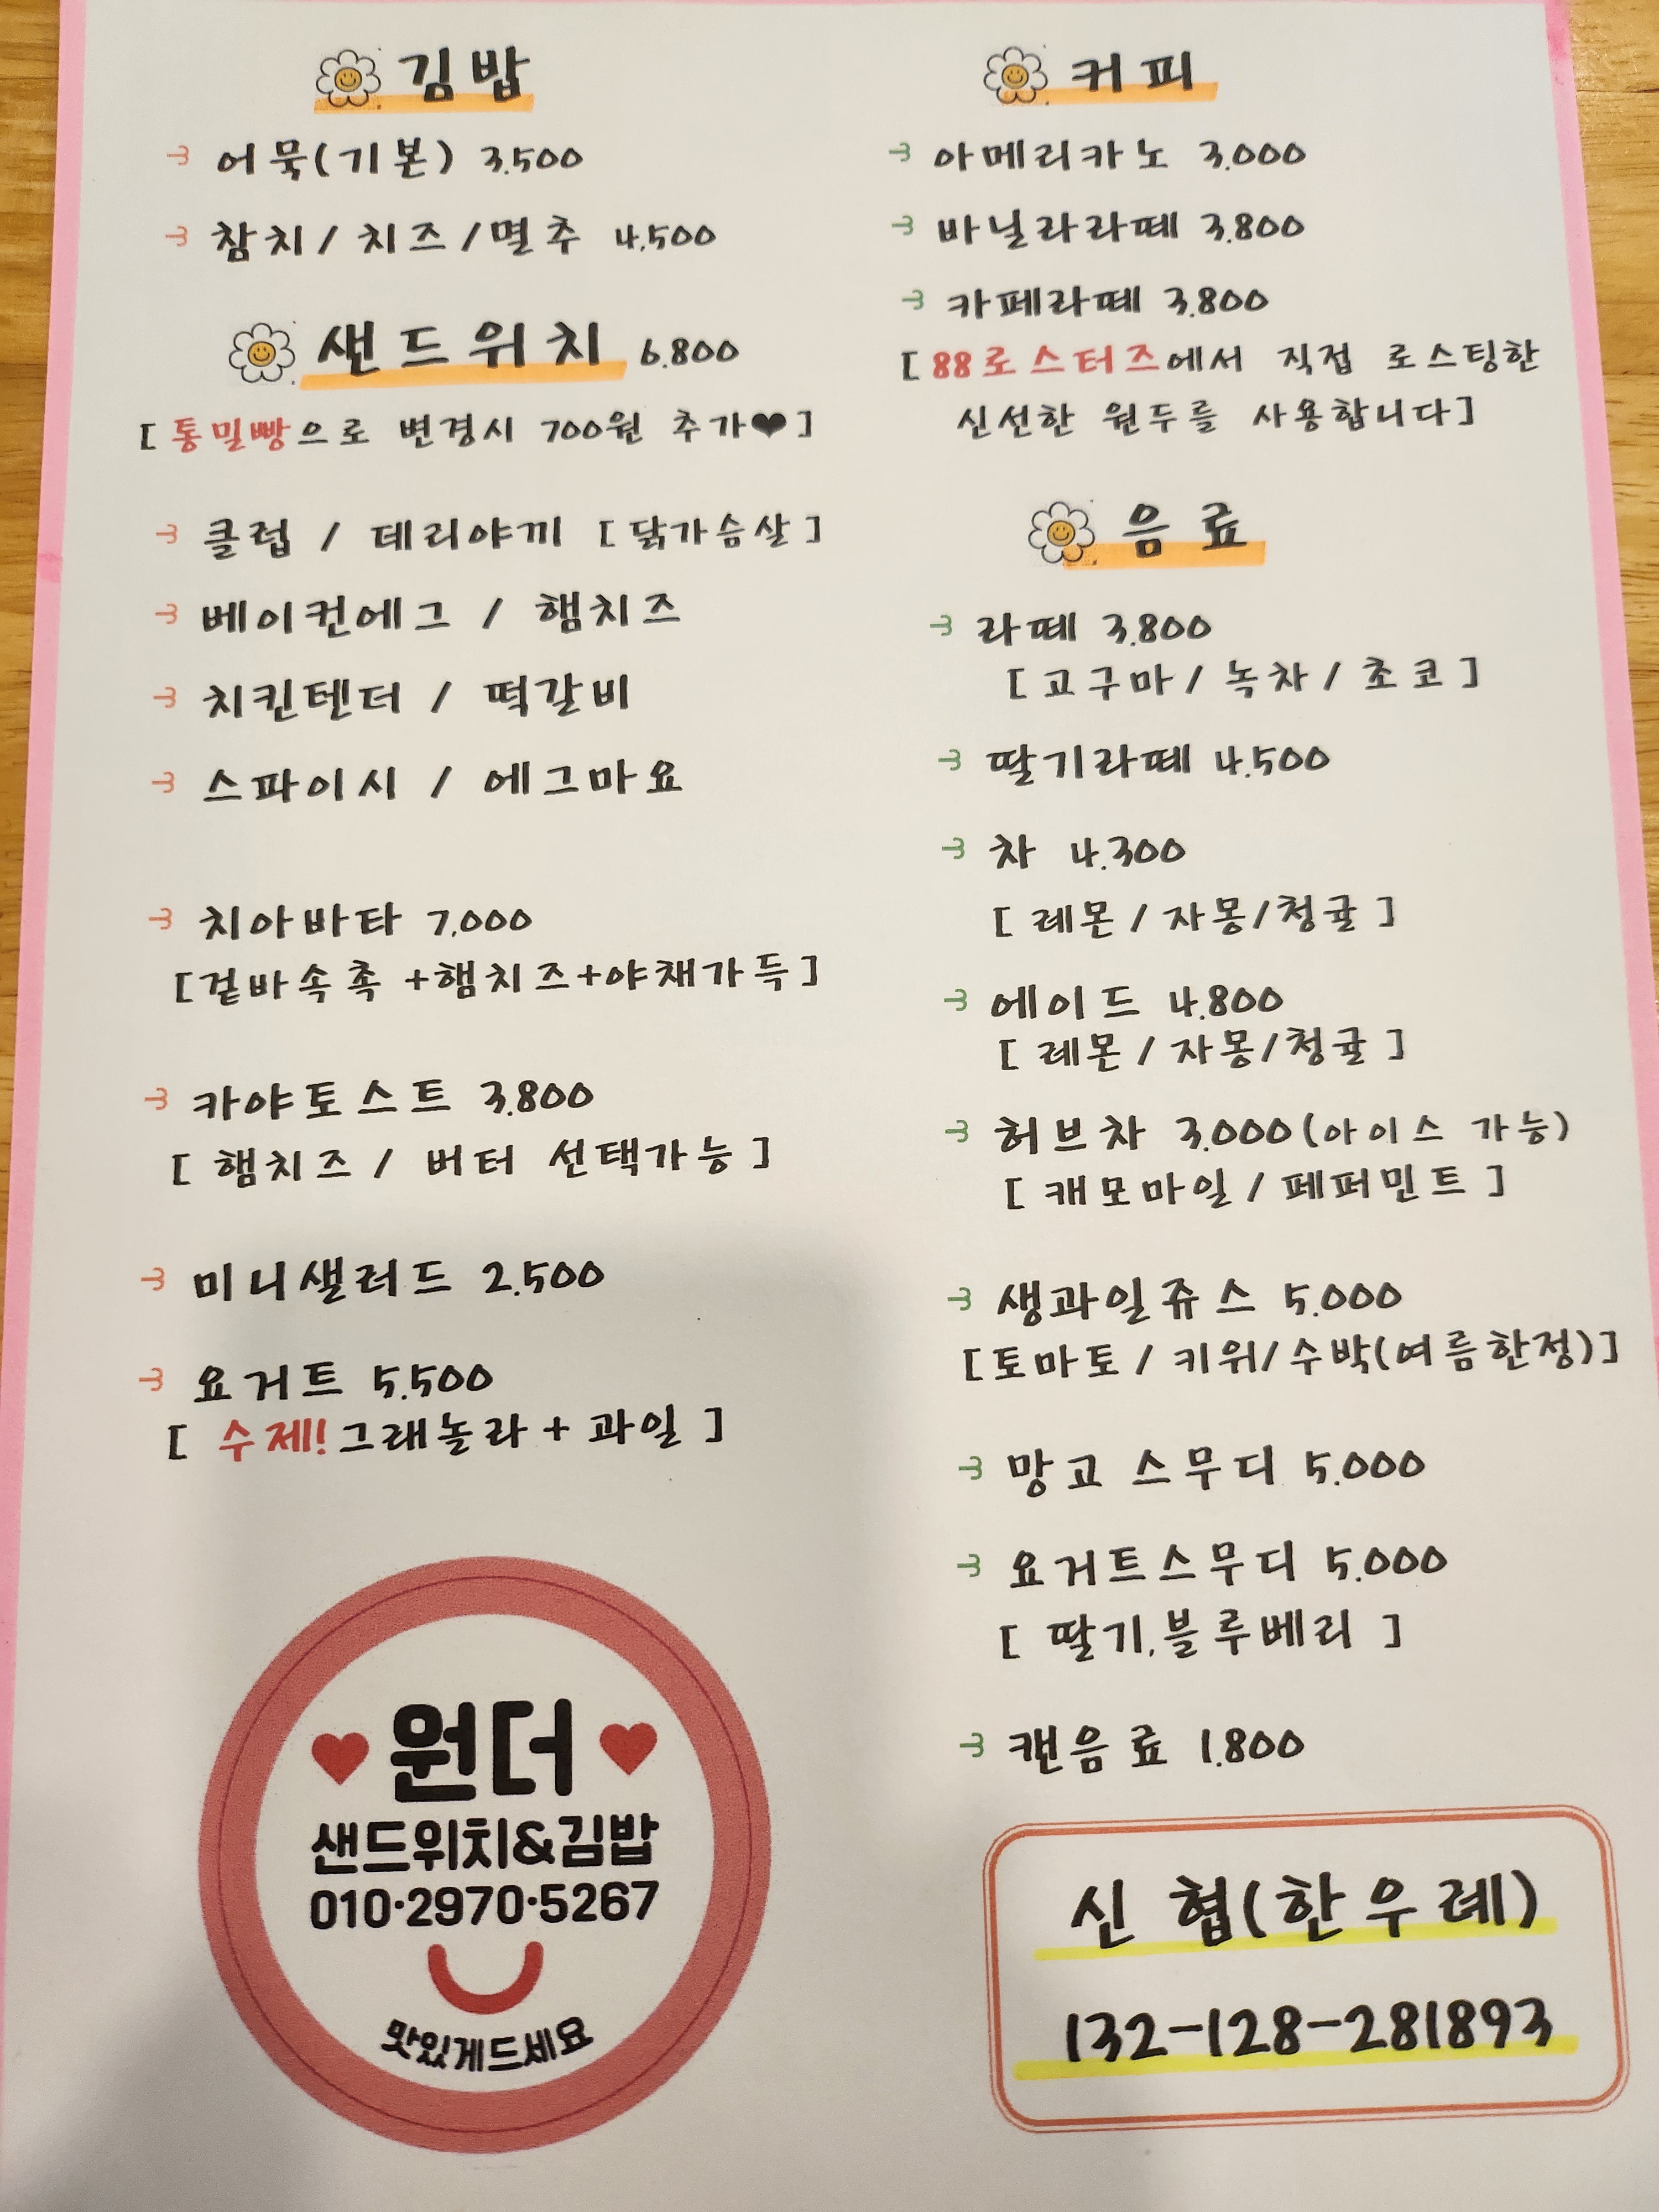 김밥
어묵(기본) 3.500
참치/치즈/멸추 4.500
샌드위치 6.800
[통밀빵으로 변경시 700원 추가❤]
클럽 / 데리야끼 [닭가슴살]
베이컨에그 / 햄치즈
치킨텐더 / 떡갈비
스파이시 / 에그마요
치아바타 7.000
[겉바속촉+햄치즈+야채가득]
카야토스트 3.800
[햄치즈 / 버터 선택가능]
미니샐러드 2.500
요거트 5.500
[수제!그래놀라+과일]
원더
샌드위치&김밥
010·2970·5267
맛있게드세요
커피
아메리카노 3.000
바닐라라떼 3.800
카페라떼 3.800
[88로스터즈에서 직접 로스팅한
신선한 원두를 사용합니다]
음료
라떼 3.800
[고구마/녹차/초코]
딸기라떼 4.500
차 4.300
[레몬/자몽/청귤]
에이드 4.800
[레몬/자몽/청귤]
허브차 3.000(아이스 가능)
[캐모마일/페퍼민트]
생과일쥬스 5.000
[토마토/키위/수박(여름한정)]
망고 스무디 5.000
요거트스무디 5.000
[딸기.블루베리]
캔음료 1.800
신협(한우레)
132-128-281893